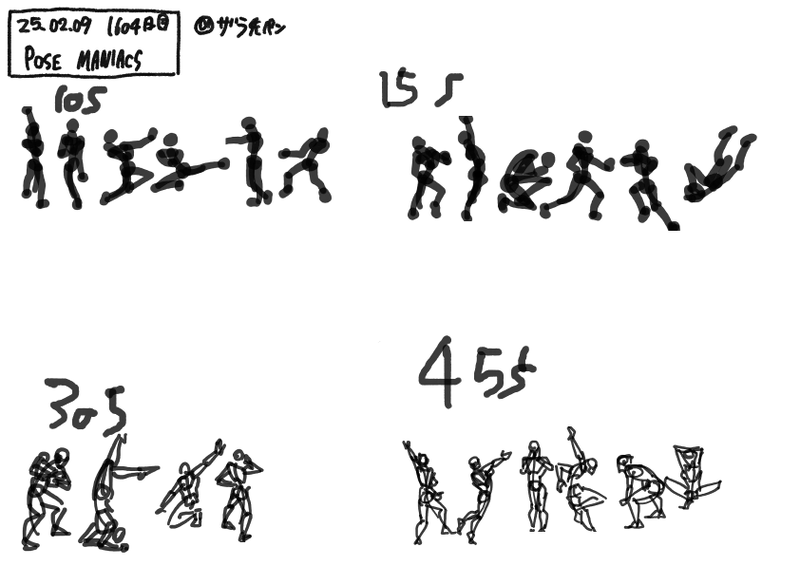 25.02.09 1604日目
POSE MANIACS
ざらhパン
10s
15s
30s
45s